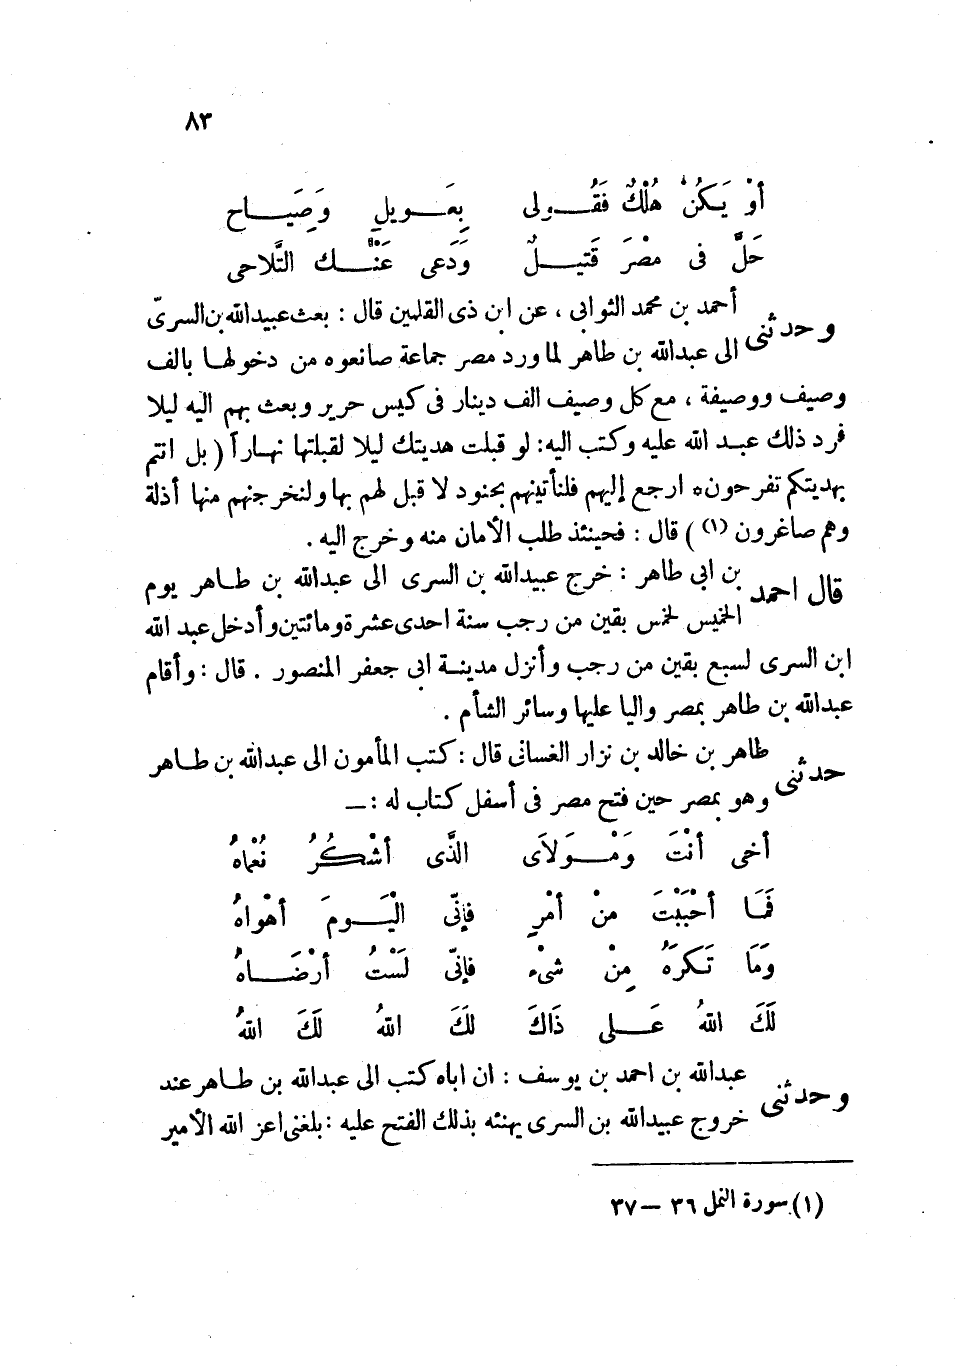 ٨٣
أَوْ يَكُنْ هُلْكٌ فَقُولى بِعَويلٍ وَصِيَاحِ
حَلَّ فى مِصْرَ قَتِيلٌ وَدَعى عَنْكِ التَّلاحى
وحدثنى أحمد بن محمد الثوابى ، عن ابن ذى القلمين قال : بعث عبيدالله بن السرىّ
الى عبدالله بن طاهر لما ورد مصر جماعة صانعوه من دخولها بالف
وصيف ووصيفة ، مع كل وصيف الف دينار فى كيس حرير وبعث بهم اليه ليلا
فرد ذلك عبد الله عليه وكتب اليه: لو قبلت هديتك ليلا لقبلتها نهاراً ( بل انتم
بهديتكم تفرحون ٭ ارجع إليهم فلنأتينهم بجنود لا قبل لهم بها ولنخرجنهم منها أذلة
وهم صاغرون (١) ) قال : فحينئذ طلب الأمان منه وخرج اليه .
قال احمد بن ابى طاهر : خرج عبيدالله بن السرى الى عبدالله بن طاهر يوم
الخميس لخمس بقين من رجب سنة احدى عشرة ومائتين وأدخل عبد الله
ابن السرى لسبع بقين من رجب وأنزل مدينة ابى جعفر المنصور . قال : وأقام
عبدالله بن طاهر بمصر واليا عليها وسائر الشأم .
حدثنى طاهر بن خالد بن نزار الغسانى قال : كتب المأمون الى عبدالله بن طاهر
وهو بمصر حين فتح مصر فى أسفل كتاب له : ــ
أخى أنْتَ وَمْولاَى الَّذى أشْكُرُ نُعْماهُ
فَمَا أحْبَبْتَ مِنْ أمْرٍ فإنّى الْيَومَ أهْواهُ
وَمَا تَكرَهُ مِنْ شىْء فإنّى لَسْتُ أرْضَاهُ
لَكَ اللهُ عَلى ذَاكَ لَكَ اللهُ لَكَ اللهُ
وحدثنى عبدالله بن احمد بن يوسف : ان اباه كتب الى عبدالله بن طاهر عند
خروج عبيدالله بن السرى يهنئه بذلك الفتح عليه : بلغنى اعز الله الأمير
(١) سورة النمل ٣٦ – ٣٧